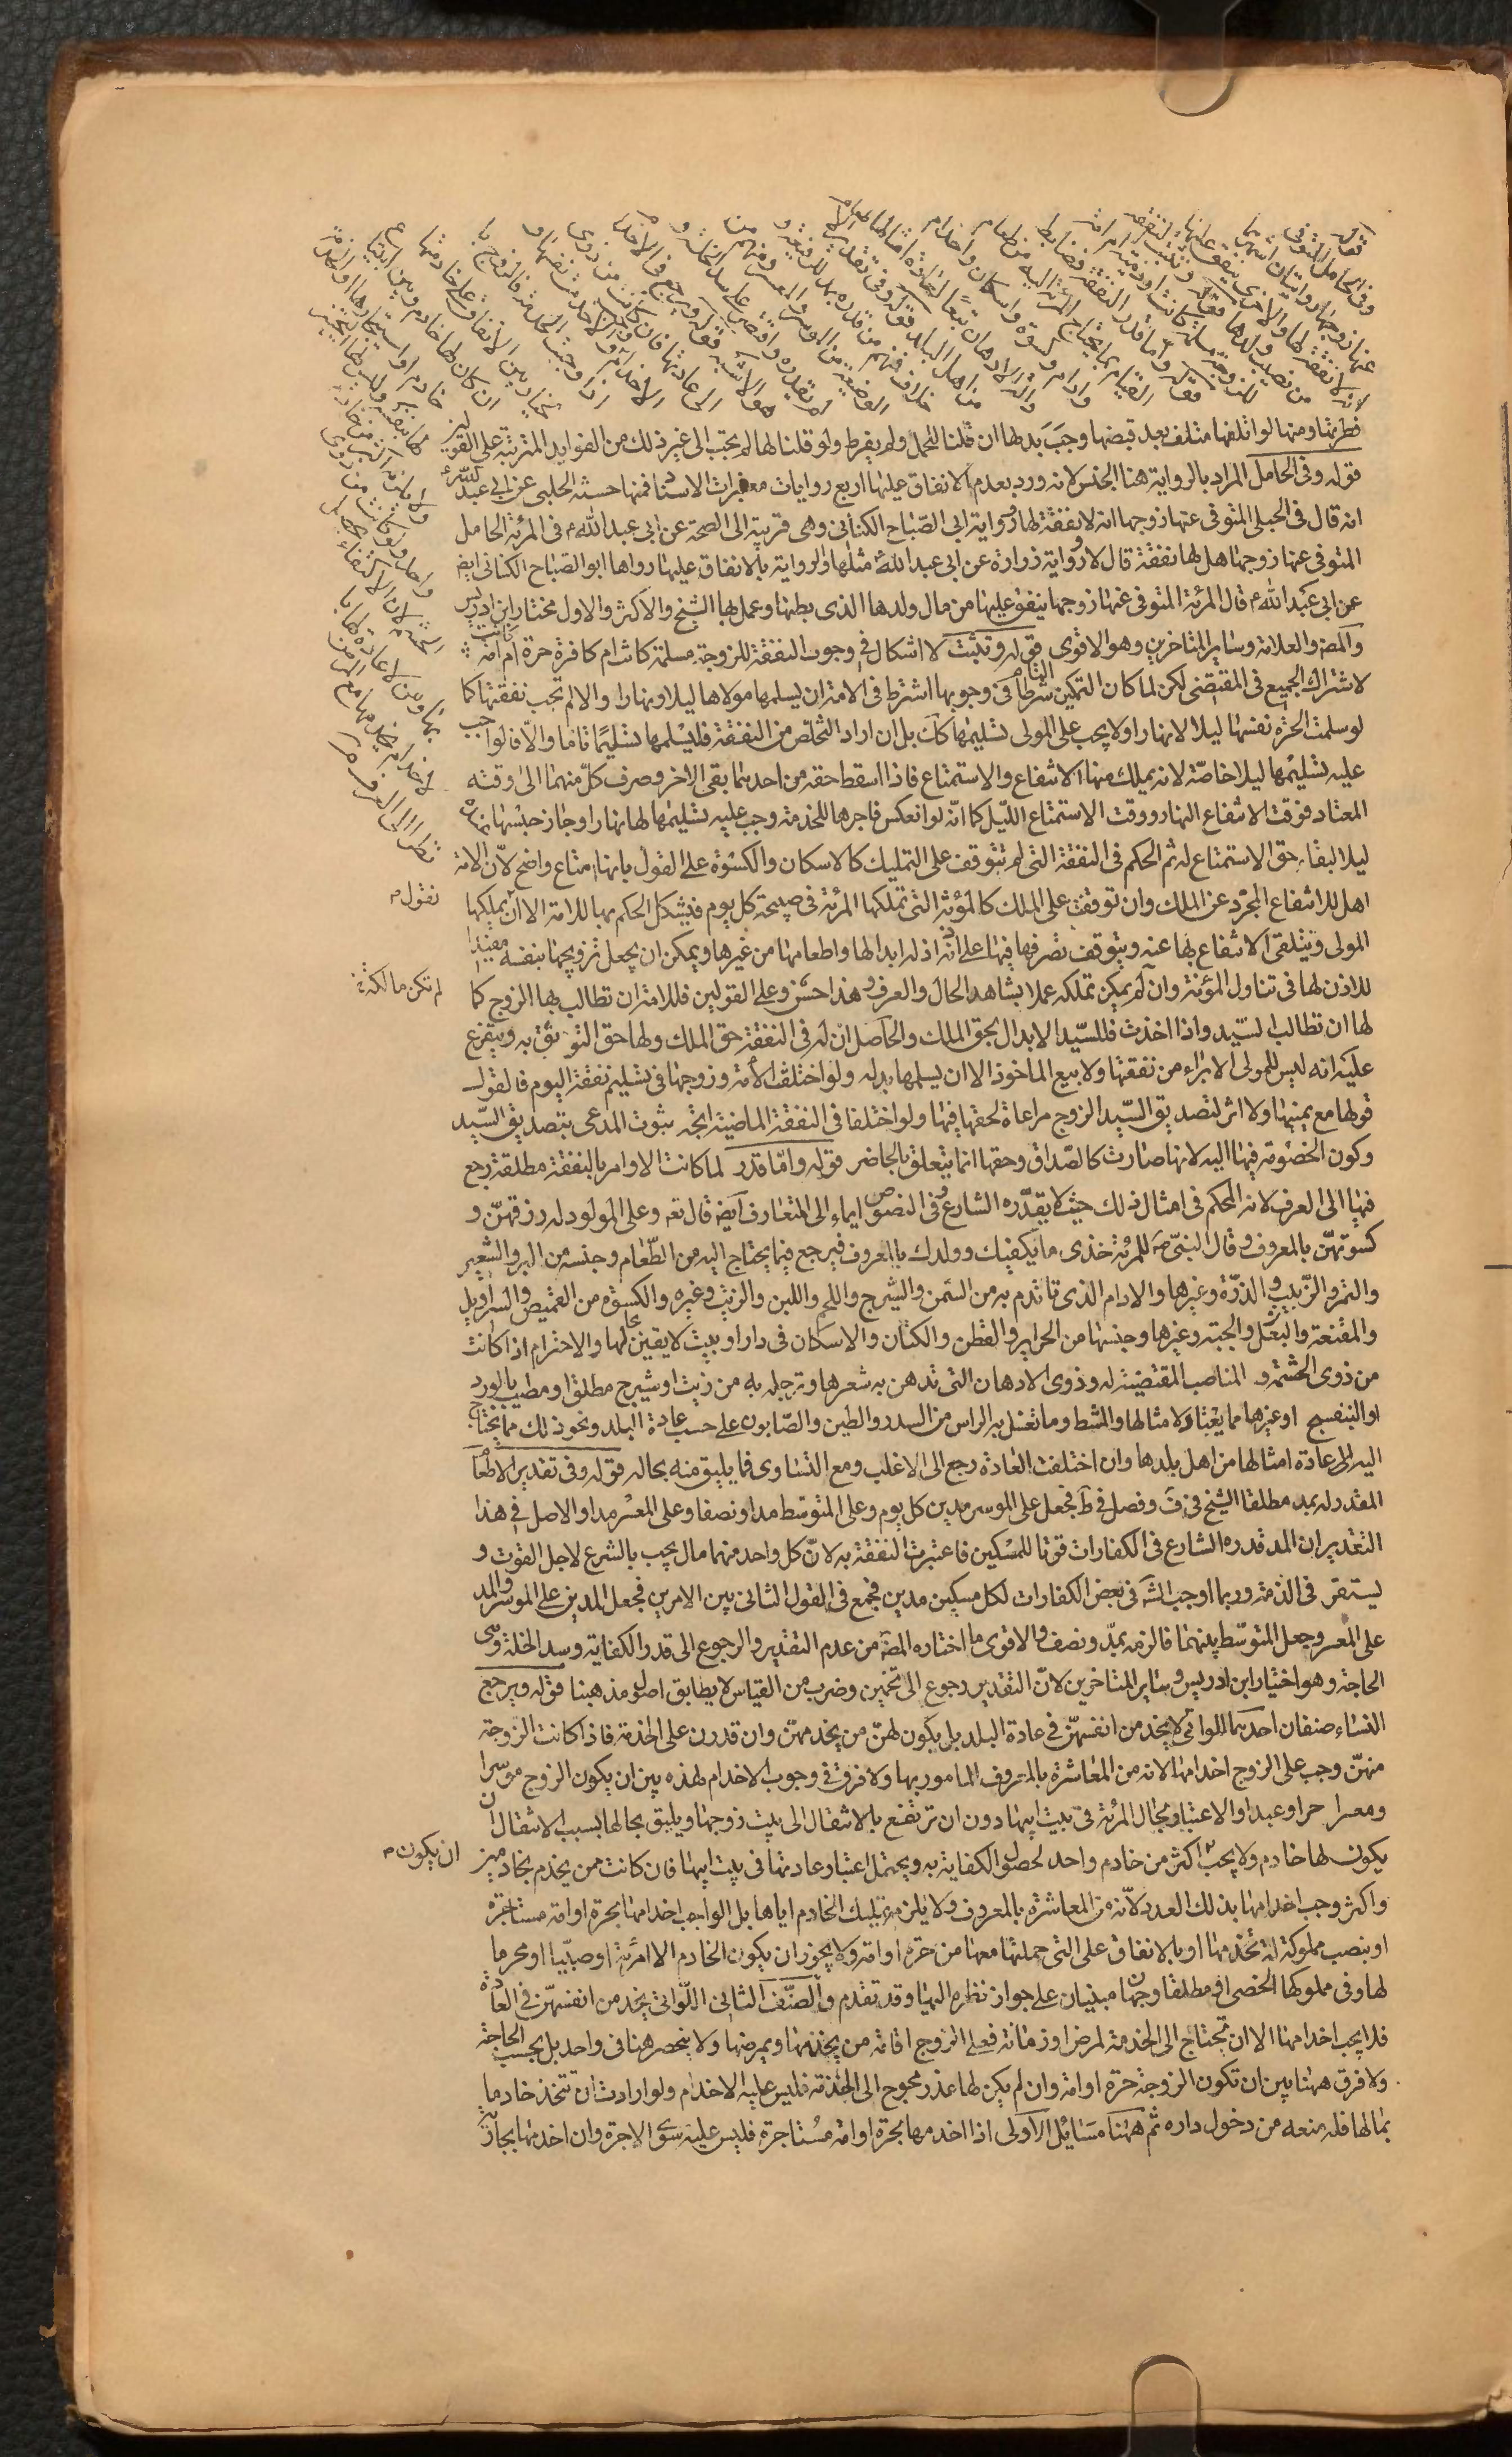 قوله
وفي الحامل المتوفى
عنها زوجها روايتان اشهرهما
انه لا نفقة لها والاخرى ينفق عليها
من نصيب ولدها قوله وتثبت النفقة
للزوجة مسلمة كانت او ذمية او امة
قوله واما قدر النفقة فضابطه
القيام بما يحتاج المرأة اليه من طعام
وادام وكسوة واسكان واخدام
وآلة الادهان تبعا لعادة امثالها
من اهل البلد قوله وفي تقدير الاطعام
خلاف فمنهم من قدره بمد للرفيعة و
الوضيعة من الموسر والمعسر ومنهم من
لم يقدره واقتصر على سد الخلة و
هو الاشبه قوله ويرجع في الاخدام
الى عادتها فان كانت من ذوي
الاخدام وجب والا خدمت نفسها و
اذا وجبت الخدمة فالزوج با
لخيار بين الانفاق على خادمها
ان كان لها خادم وبين ابتياع
خادم او استيجارها او الخدمة
لها بنفسه وليس لها التخيير
ولا يلزمه اكثر من خادم
واحد ولو كانت من ذوي
الحشم لان الاكتفاء يحصل
بها ومن لا عادة لها با
لاخدام يخدمها مع المرض
نظرا الى العرف
فطرتها ومنها لو اتلفها متلف بعد قبضها وجب بدلها ان قلنا للحمل ولم يفرط ولو قلنا لها لم يجب الى غير ذلك من الفوايد المترتبة على القولين
قوله وفي الحامل المراد بالرواية هنا الجنس لانه ورد بعدم الانفاق عليها اربع روايات معتبرات الاسناد فمنها حسنة الحلبي عن ابي عبد الله ع
انه قال في الحبلى المتوفى عنها زوجها انه لا نفقة لها ورواية ابي الصباح الكناني وهي قريبة الى الصحة عن ابي عبد الله ع في المرئة الحامل
المتوفى عنها زوجها هل لها نفقة قال لا ورواية زرارة عن ابي عبد الله ع مثلها والرواية بالانفاق عليها رواها ابو الصباح الكناني ايض
عن ابي عبد الله ع قال المرئة المتوفى عنها زوجها ينفق عليها من مال ولدها الذي بطنها وعمل بها الشيخ والاكثر والاول مختار ابن ادريس
والمصة والعلامة وساير المتاخرين وهو الاقوى قوله وتثبت لا اشكال في وجوب النفقة للزوجة مسلمة كانت ام كافرة حرة ام امة كانت
لاشتراك الجميع في المقتضي لكن لما كان التمكين التام شرطا في وجوبها اشترط في الامة ان يسلمها مولاها ليلا ونهارا والا لم تجب نفقتها كما
لو سلمت الحرة نفسها ليلا لا نهارا ولا يجب على المولى تسليمها كك بل ان اراد التخلص من النفقة فليسلمها تسليما تاما والا فالواجب
عليه تسليمها ليلا خاصة لانه يملك منها الانتفاع والاستمتاع فاذا اسقط حقه من احدهما بقي الاخر وصرف كل منهما الى وقته
المعتاد فوقت الانتفاع النهار ووقت الاستمتاع الليل كما انه لو انعكس فاجرها للخدمة وجب عليه تسليمها لها نهارا وجاز حبسها عنه
ليلا لبقاء حق الاستمتاع له ثم الحكم في النفقة التي لم تتوقف على التمليك كالاسكان والكسوة على القول بانها امتاع واضح لان الامة
اهل للانتفاع المجرد عن الملك وان توقفت على الملك كالمؤنة التي تملكها المرئة في صبيحة كل يوم فيشكل الحكم بها للامة الا ان يملكها
نقول
المولى ويتلقى الانتفاع بها عنه ويتوقف تصرفها فيها على اذنه اذ له ابدالها واطعامها من غيرها ويمكن ان يجعل تزويجها بنفسه مفيدا
للاذن لها في تناول المؤنة وان لم يمكن تملكه عملا بشاهد الحال والعرف وهذا حسن وعلى القولين فللامة ان تطالب بها الزوج كما
لم تكن مالكة
لها ان تطالب السيد واذا اخذت فللسيد الابدال بحق الملك والحاصل ان له في النفقة حق الملك ولها حق التوثق به ويتفرع
عليه انه ليس للمولى الابراء من نفقتها ولا بيع الماخوذ الا ان يسلمها بدله ولو اختلفت الامة وزوجها في تسليم نفقة اليوم فالقول
قولها مع يمينها ولا اثر لتصديق السيد الزوج مراعاة لحقها فيها ولو اختلفا في النفقة الماضية اتجه ثبوت المدعى بتصديق السيد
وكون الخصومة فيها اليه لانها صارت كالصداق وحقها انما يتعلق بالحاضر قوله واما قدر لما كانت الاوامر بالنفقة مطلقة رجع
فيها الى العرف لانه المحكم في امثال ذلك حيث لا يقدره الشارع وفي النصوص ايماء الى المتعارف ايضا قال تعه وعلى المولود له رزقهن و
كسوتهن بالمعروف وقال النبي ص للمرئة خذي ما يكفيك وولدك بالمعروف فيرجع فيما يحتاج اليه من الطعام وجنسه من البر والشعير
والتمر والزبيب والذرة وغيرها والادام الذي تاتدم به من السمن والشيرج واللحم واللبن والزيت وغيره والكسوة من القميص والسراويل
والمقنعة والنعل والجبة وغيرها وجنسها من الحرير والقطن والكتان والاسكان في دار او بيت لايقين بحالها والاخدام اذا كانت
من ذوي الحشمة و المناصب المقتضية له وذوي الادهان التي تدهن به شعرها وترجله به من زيت او شيرج مطلق او مطيب بالورد
او البنفسج او غيرهما مما يعتاد لامثالها والمشط وما تغسل به الراس من السدر والطين والصابون على حسب عادة البلد ونحو ذلك مما يحتاج
اليه الى عادة امثالها من اهل بلدها وان اختلفت العادة رجع الى الاغلب ومع التساوي فما يليق منه بحاله قوله وفي تقدير الاطعام
المقدر له بمد مطلقا الشيخ في ف وفصل في ط فجعل على الموسر مدين كل يوم وعلى المتوسط مدا ونصفا وعلى المعسر مدا والاصل في هذا
التقدير ان المد قدره الشارع في الكفارات قوتا للمسكين فاعتبرت النفقة به لان كل واحد منهما مال يجب بالشرع لاجل القوت و
يستقر في الذمة وربما اوجب الشه في بعض الكفارات لكل مسكين مدين فجمع في القول الثاني بين الامرين فجعل المدين على الموسر والمد
على المعسر وجعل المتوسط بينهما فالزمه بمد ونصف والاقوى ما اختاره المصة من عدم التقدير والرجوع الى قدر الكفاية وسد الخلة وهي
الحاجة وهو اختيار ابن ادريس وساير المتاخرين لان التقدير رجوع الى تخمين وضرب من القياس لا يطابق اصول مذهبنا قوله ويرجع
النساء صنفان احدهما اللواتي لا يخدمن انفسهن في عادة البلد بل يكون لهن من يخدمهن وان قدرن على الخدمة فاذا كانت الزوجة
منهن وجب على الزوج اخدامها لانه من المعاشرة بالمعروف المامور بها ولا فرق في وجوب الاخدام لهذه بين ان يكون الزوج موسرا
ومعسرا حرا وعبدا والاعتبار بحال المرئة في بيت ابيها دون ان ترتفع بالانتقال الى بيت زوجها ويليق بحالها بسبب الانتقال ان
يكون لها خادم ولا يجب اكثر من خادم واحد لحصول الكفاية به ويحتمل اعتبار عادتها في بيت ابيها فان كانت ممن يخدم بخادمين
ان يكون
واكثر وجب اخدامها بذلك العدد لانه من المعاشرة بالمعروف ولا يلزمه تمليك الخادم اياها بل الواجب اخدامها بحرة او امة مستاجرة
او بنصب مملوكة له تخدمها او بالانفاق على التي حملتها معها من حرة او امة ولا يجوز ان يكون الخادم الا امرئة او صبيا او محرما
لها وفي مملوكها الخصي او مطلقا وجهان مبنيان على جواز نظره اليها وقد تقدم والصنف الثاني اللواتي يخدمن انفسهن في العادة
فلا يجب اخدامها الا ان تحتاج الى الخدمة لمرض او زمانة فعلى الزوج اقامة من يخدمها ويمرضها ولا ينحصر هنا في واحد بل بحسب الحاجة
ولا فرق ههنا بين ان تكون الزوجة حرة او امة وان لم يكن لها عذر محوج الى الخدمة فليس عليه الاخدام ولو ارادت ان تتخذ خادما
بمالها فله منعه من دخول داره ثم ههنا مسائل الاولى اذا اخدمها بحرة او امة مستاجرة فليس عليه سوى الاجرة وان اخدمها بجارية